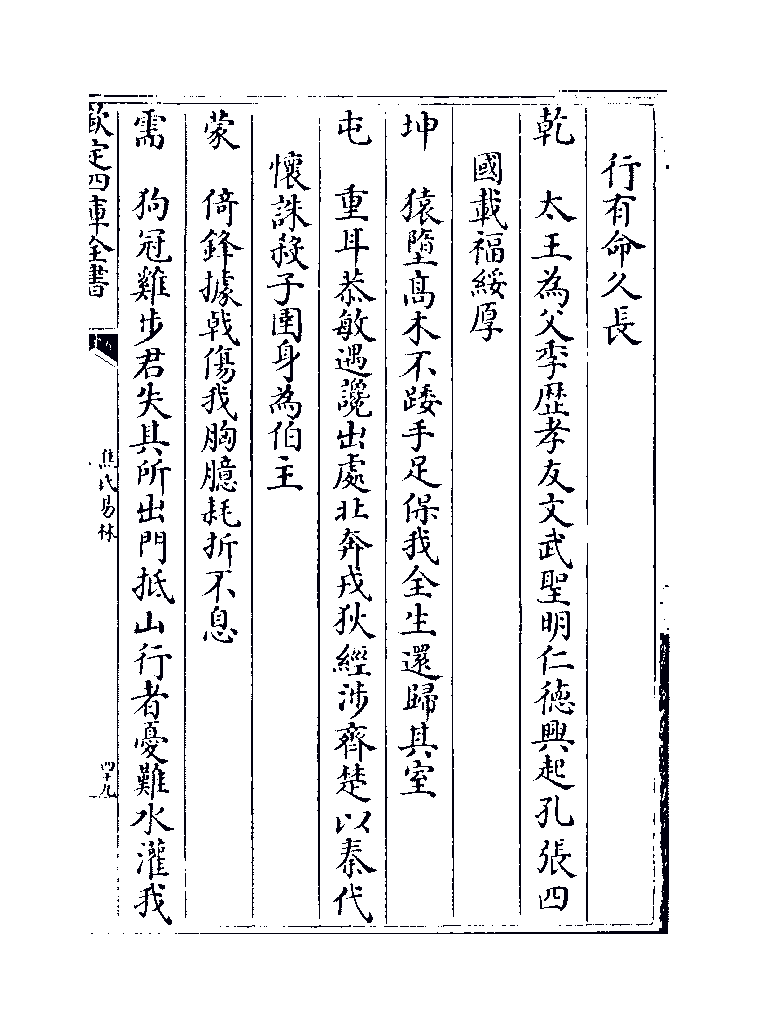 行有命久長
乾　太王為父季歴孝友文武聖明仁徳興起孔張四
國載福綏厚
坤　猿墮髙木不踒手足保我全生還歸其室
屯　重耳恭敏遇讒出處北奔戎狄經涉齊楚以秦代
懷誅殺子圉身為伯主
蒙　倚鋒據㦸傷我胸臆耗折不息
需　狗冠雞步君失其所出門抵山行者憂難水灌我
欽定四庫全書
焦氏易林
四十九